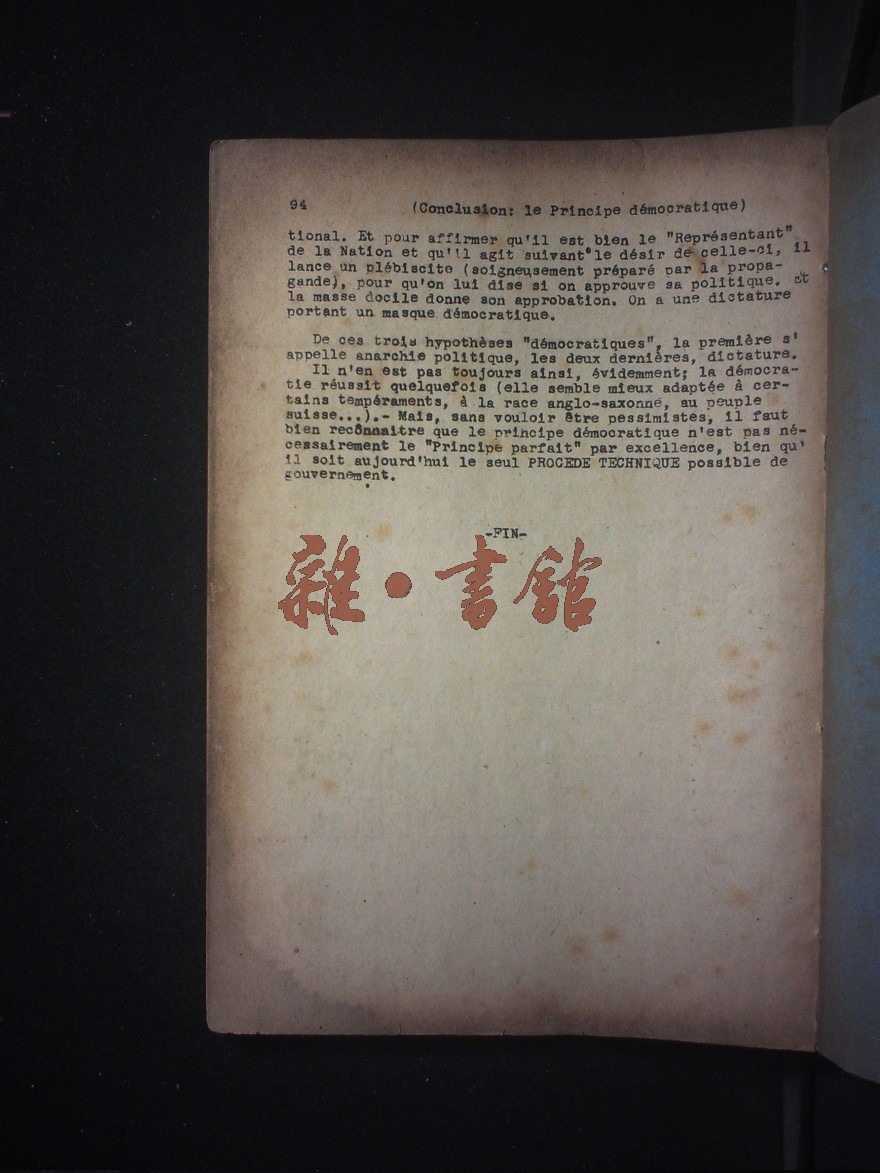 94 (Conclusion: le Principe démocratique)
tional. Et pour affirmer qu'il est bien le "Représentant"
de la Nation et qu'il agit suivant le désir de celle-ci, il
lance un plébiscite (soigneusement préparé par la propa-
gande), pour qu'on lui dise si on approuve sa politique. Et
la masse docile donne son approbation. On a une dictature
portant un masque démocratique.
De ces trois hypothèses "démocratiques", la première s'
appelle anarchie politique, les deux dernières, dictature.
Il n'en est pas toujours ainsi, évidemment; la démocra-
tie réussit quelquefois (elle semble mieux adaptée à cer-
tains tempéraments, à la race anglo-saxonne, au peuple
suisse...).- Mais, sans vouloir être pessimistes, il faut
bien reconnaitre que le principe démocratique n'est pas né-
cessairement le "Principe parfait" par excellence, bien qu'
il soit aujourd'hui le seul PROCEDE TECHNIQUE possible de
gouvernement.
-FIN-
雜·書館